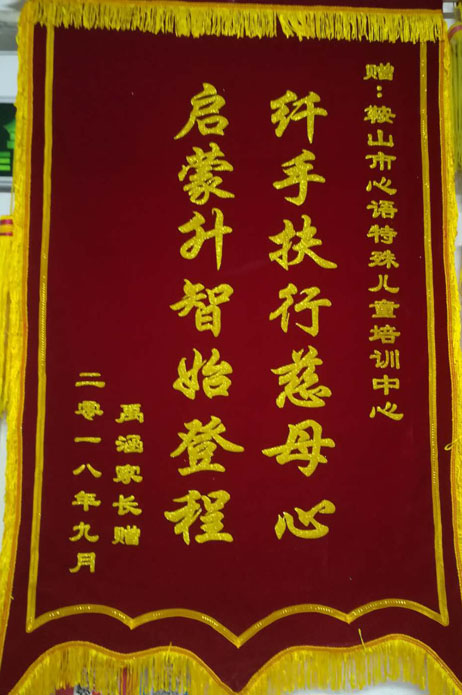 赠：鞍山市心语特殊儿童培训中心
纤手扶行慈母心
启蒙升智始登程
禹涵家长赠
二零一八年九月